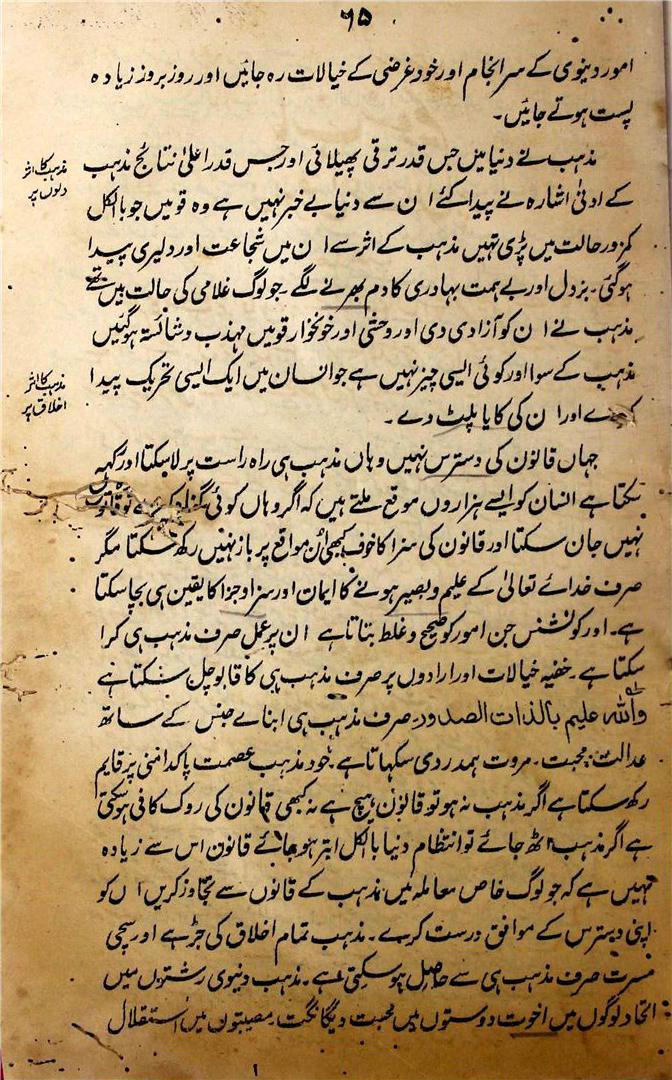 ٦٥
امور دینوی کے سرانجام اور خود غرضی کے خیالات رہ جائیں اور روز بروز زیادہ
پست ہوتے جائیں۔
مذہب کا اثر
دلوں پر
مذہب نے دنیا میں جس قدر ترقی پھیلائی اور جس قدر اعلیٰ نتائج مذہب
کے ادنیٰ اشارہ نے پیدا کئے ان سے دنیا بے خبر نہیں ہے وہ قومیں جو بالکل
کمزور حالت میں پڑی تہیں مذہب کے اثر سے ان میں شجاعت اور دلیری پیدا
ہوگئی۔ بزدل اور بے ہمت بہادری کا دم بھرنے لگے۔ جو لوگ غلامی کی حالت میں تھے
مذہب نے ان کو آزادی دی اور وحشی اور خونخوار قومیں مہذب و شائستہ ہوگئیں
مذہب کا اثر
اخلاق پر
مذہب کے سوا اور کوئی ایسی چیز نہیں ہے جو انسان میں ایک ایسی تحریک پیدا
کردے اور ان کی کایا پلٹ دے۔
جہاں قانون کی دسترس نہیں وہاں مذہب ہی راہ راست پر لا سکتا اور رکہہ
سکتا ہے انسان کو ایسے ہزاروں موقع ملتے ہیں کہ اگر وہاں کوئی گناہ کرے تو قانون
نہیں جان سکتا اور قانون کی سزا کا خوف کبھی ان مواقع پر باز نہیں رکھ سکتا مگر
صرف خدائے تعالیٰ کے علیم و بصیر ہونے کا ایمان اور سزا و جزا کا یقین ہی بچا سکتا
ہے۔ اور کونشنس جن امور کو صحیح و غلط بتاتا ہے ان پر عمل صرف مذہب ہی کرا
سکتا ہے۔ خفیہ خیالات اور ارادوں پر صرف مذہب ہی کا قابو چل سکتا ہے
واللہ علیم بالذات الصدور۔ صرف مذہب ہی ابنائے جنس کے ساتھ
عدالت۔ محبت۔ مروت ہمدردی سکہاتا ہے۔ خود مذہب عصمت پاکدامنی پر قایم
رکھ سکتا ہے اگر مذہب نہ ہو تو قانون ہیچ ہے نہ کبھی قانون کی روک کافی ہوسکتی
ہے اگر مذہب اٹھ جائے تو انتظام دنیا بالکل ابتر ہو جائے قانون اس سے زیادہ
نہیں ہے کہ جو لوگ خاص معاملہ میں مذہب کے قانوں سے تجاوز کریں ان کو
اپنی دسترس کے موافق درست کرے۔ مذہب تمام اخلاق کی جڑ ہے اور سچی
مسرت صرف مذہب ہی سے حاصل ہوسکتی ہے۔ مذہب دنیوی رشتوں میں
اتحاد لوگوں میں اخوت دوستوں میں محبت و یگانگت۔ مصیبتوں میں استقلال